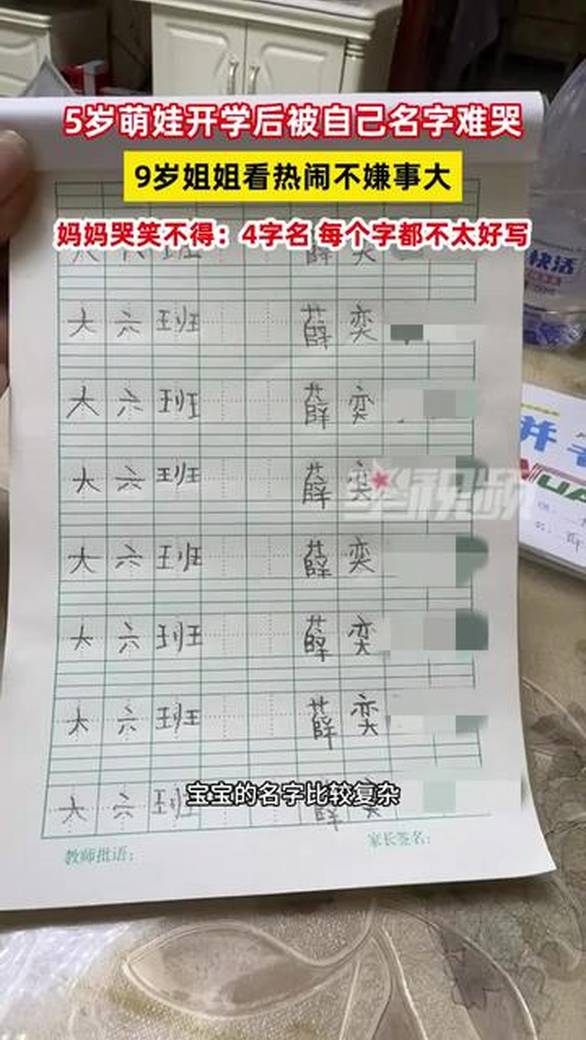 5岁萌娃开学后被自己名字难哭
9岁姐姐看热闹不嫌事大
妈妈哭笑不得：4字名 每个字都不太好写
大六班 薛奕
大六班 薛奕
大六班 薛奕
大六班 薛奕
星视频
大六班 薛奕
大六班 薛奕
大六班 薛奕
大六班 薛奕
宝宝的名字比较复杂
教师批语：
家长签名：
快活
拼音